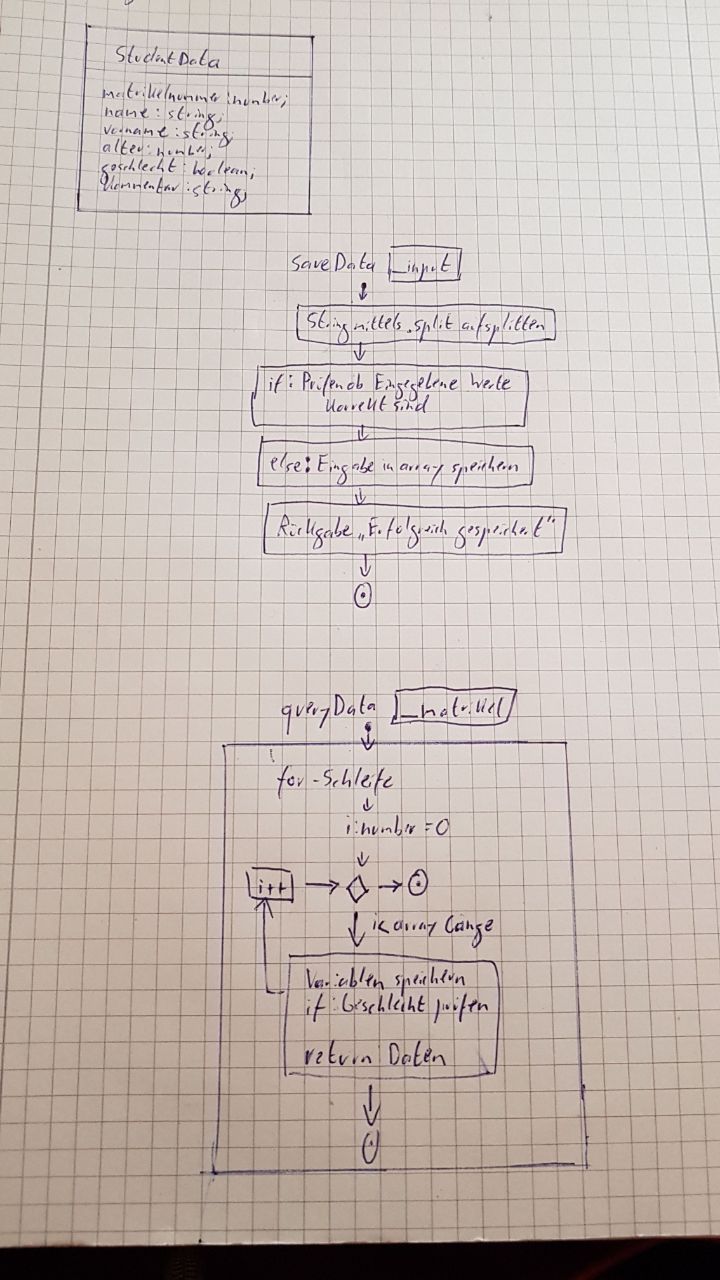 StudentData
matrikelnummer:number;
name: string;
vorname: string;
alter: number;
geschlecht: boolean;
kommentar: string;
saveData _input
String mittels .split aufsplitten
if: Prüfen ob Eingegebene Werte
korrekt sind
else: Eingabe in array speichern
Rückgabe „Erfolgreich gespeichert"
queryData _matrikel
for-Schleife
i:number=0
i++
i< array Länge
Variablen speichern
if: Geschlecht prüfen
return Daten